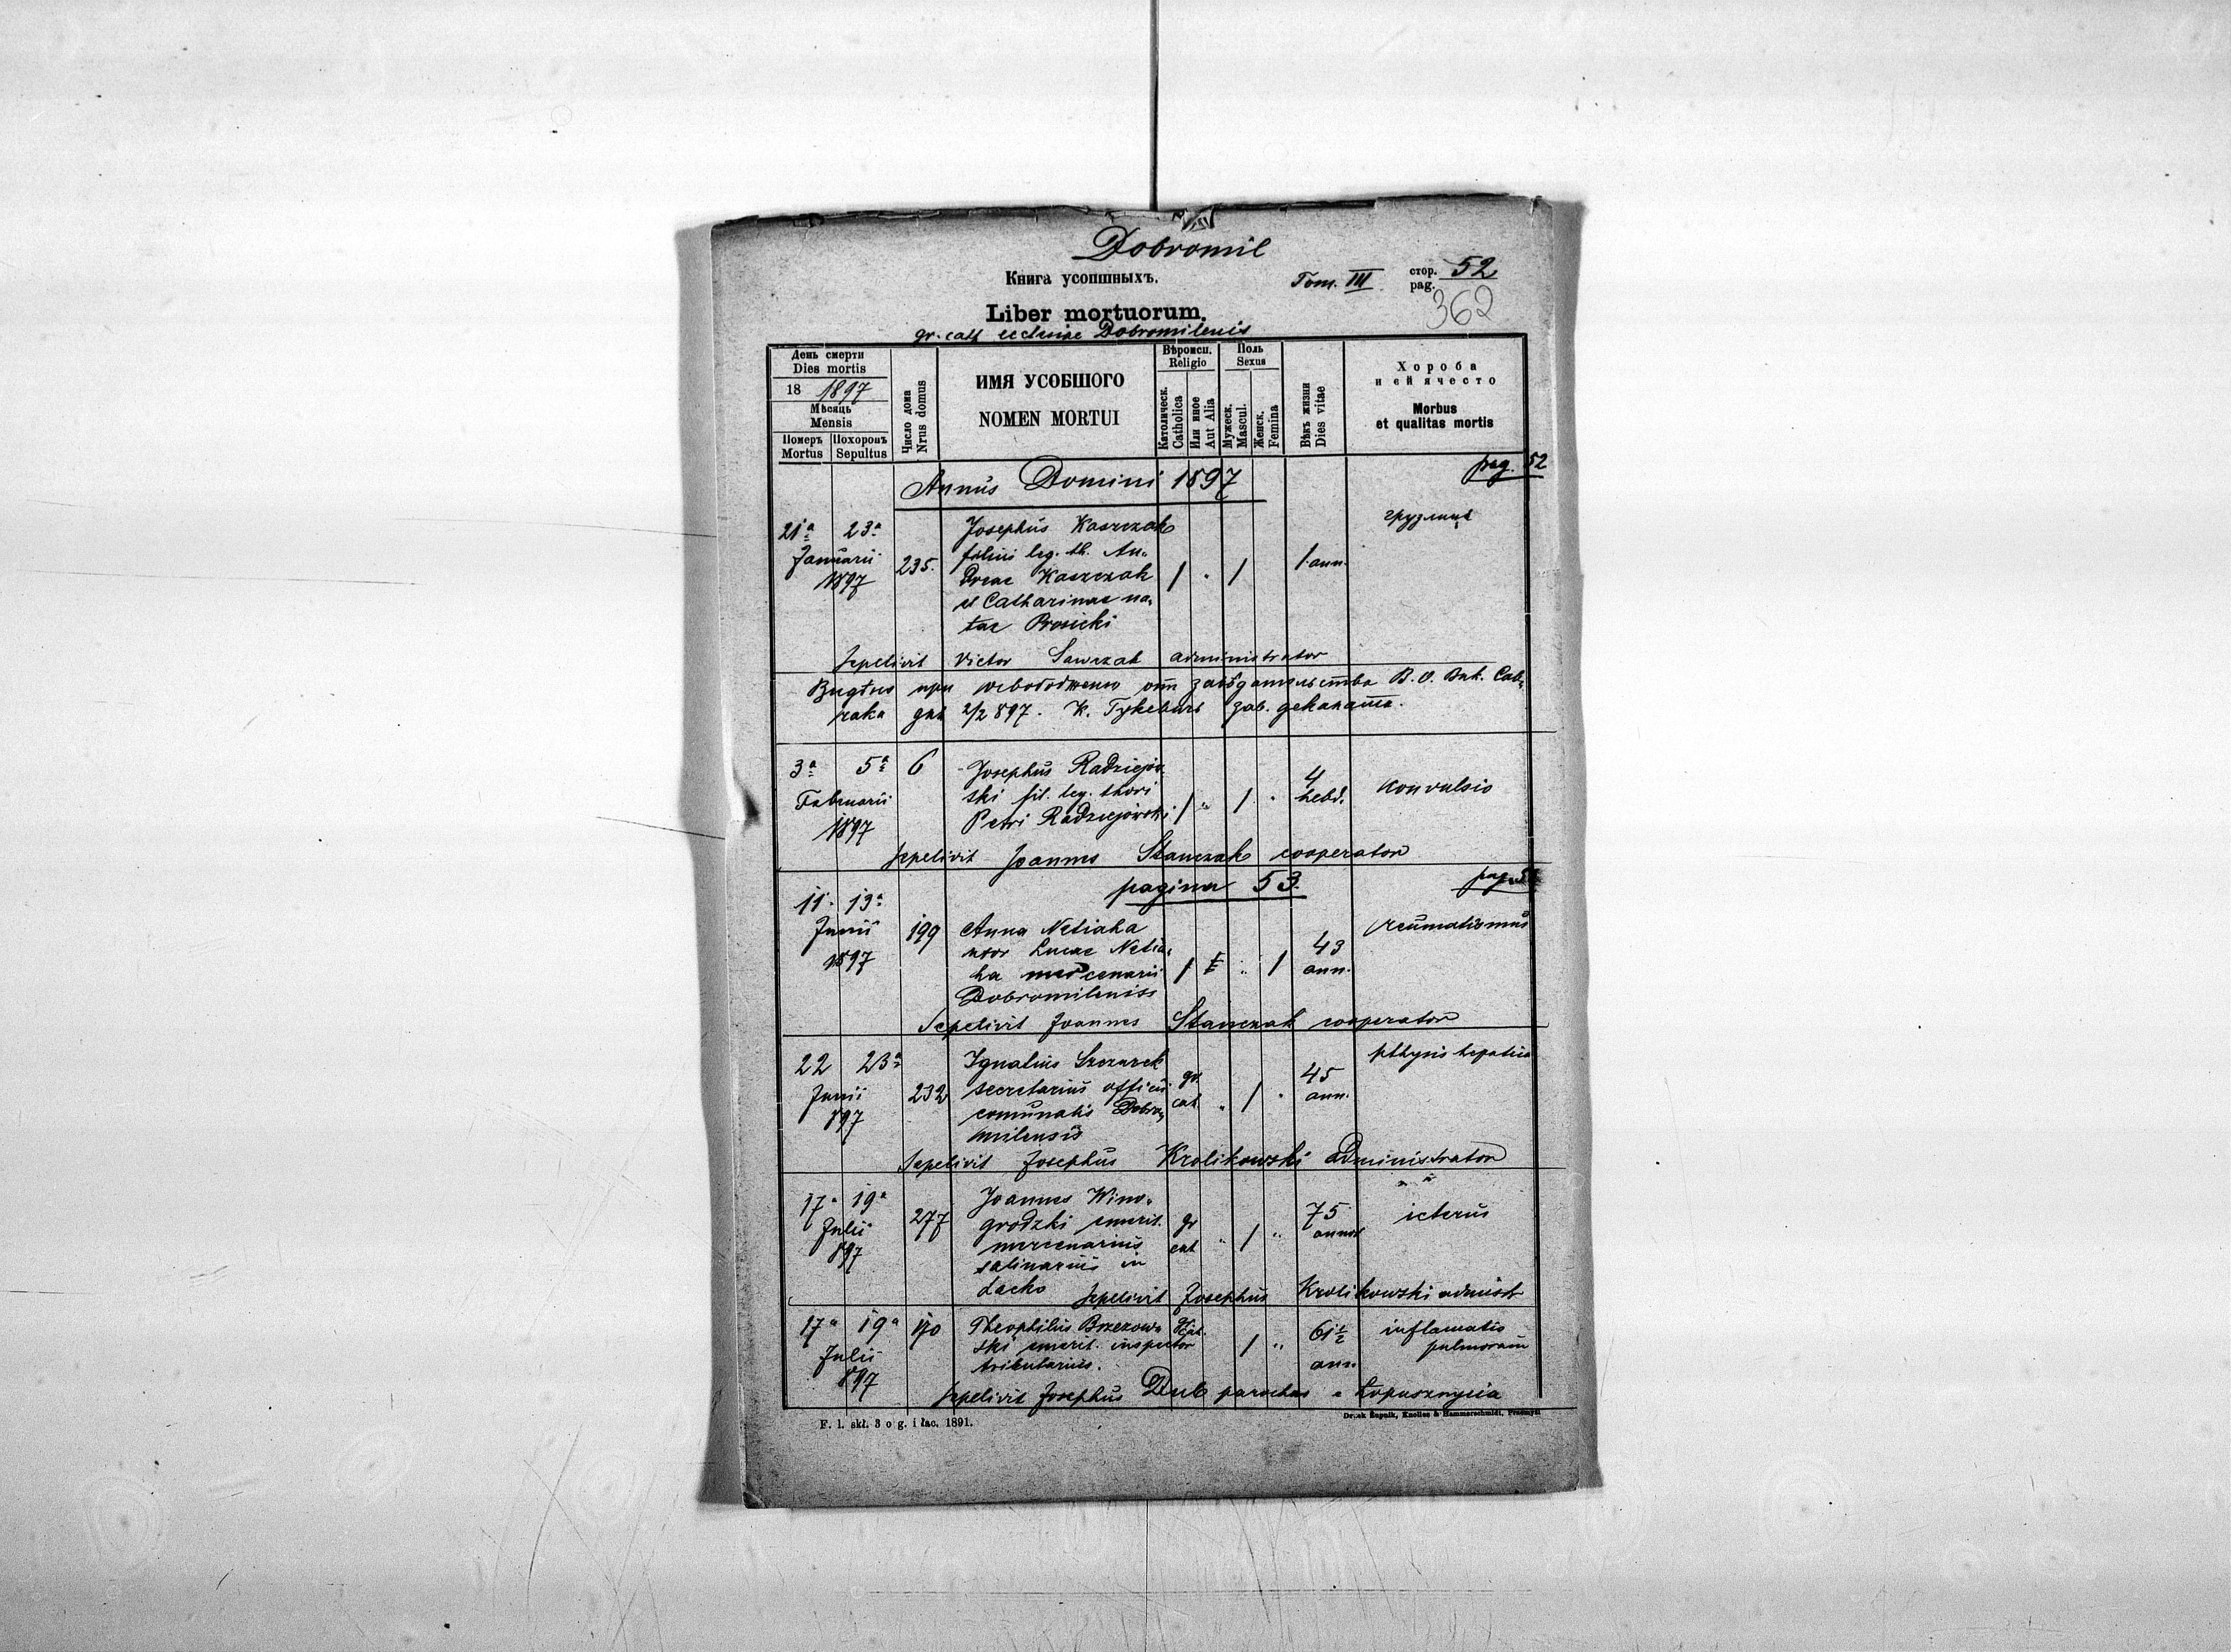 Dobromil
Книга усопшныхъ.
Tom. III
стор. 52
pag.
362
Liber mortuorum.
gr. cath ecclesiae Dobromilensis
День смерти
Dies mortis
18 1897
Мѣсяць
Mensis
Померъ
Mortus
Похоронъ
Sepultus
Число дома
Nrus domus
ИМЯ УСОБШОГО
NOMEN MORTUI
Вѣроисп.
Religio
Католическ.
Catholica
Или иное
Aut Alia
Поль
Sexus
Мужеск.
Mascul.
Женск.
Femina
Вѣкъ жизни
Dies vitae
Хороба
и ей ячесто
Morbus
et qualitas mortis
pag. 52
Annus Domini 1897
21ª 23ª
Januarii
1897
235.
Josephus Kaszczak
filius leg. th. An-
dreae Kaszczak
et Catharinae na-
tae Prosicki
/ . /
1 ann.
грузлиця
Sepelivit Victor Sawczak administrator
при от В. О. Вик. Сав-
чака 2/2 897. К. зав. деканата.
3ª 5ª
Februarii
1897
6
Josephus Radziejow-
ski fil. leg. thori
Petri Radziejowski
/ " / "
4
hebd.
Konvulsio
Sepelivit Joannes Stanczak cooperator
pagina 53.
11. 13ª
Junii
1897
199
Anna Netiaha
uxor Lucae Netia-
ha mercenarii
Dobromilensis
43
ann.
reumatismus
Sepelivit Joannes Stanczak cooperator
22 23ª
Junii
897
232
Ignatius Szczurek
secretarius officii
comunalis Dobro-
milensis
gr.
cat
" / "
45
ann.
phtysis hepatica
Sepelivit Josephus Krolikowski Administrator
17ª 19ª
Julii
897
277
Joannes Wino-
grodzki emerit.
mercenarius
salinarius in
Lacko
gr
cat
" / "
75
annos
icterus
Sepelivit Josephus Krolikowski administ
17ª 19ª
Julii
897
170
Theophilus Brzezow-
ski emerit. inspector
tributarius.
/ "
61½
ann.
inflamatio
pulmonum
Sepelivit Josephus Dub parochus e Łopusznycia
F. l. skł. 3 o g. i łac. 1891.
Druck Żupnik, Knoller & Hammerschmidt, Przemyśl